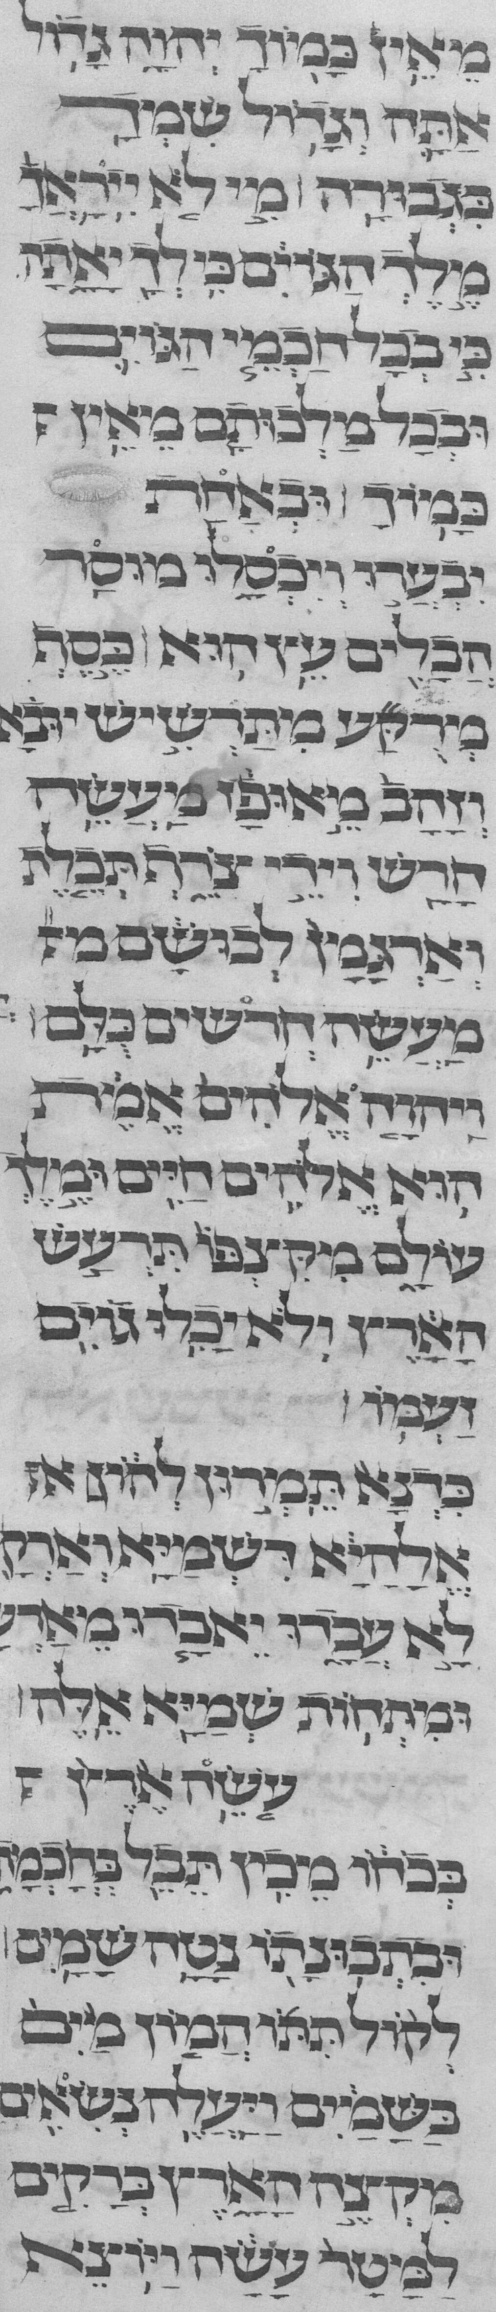 מֵאֵין כָּמוֹךָ יְהוָה גָּדוֹל
אַתָּה וְגָדוֹל שִׁמְךָ
בִּגְבוּרָה מִי לֹא יִירָאֲךָ
מֶלֶךְ הַגּוֹיִם כִּי לְךָ יָאָתָה
כִּי בְכָל חַכְמֵי הַגּוֹיִם
וּבְכָל מַלְכוּתָם מֵאֵין
כָּמוֹךָ וּבְאַחַת
יִבְעֲרוּ וְיִכְסָלוּ מוּסַר
הֲבָלִים עֵץ הוּא כֶּסֶף
מְרֻקָּע מִתַּרְשִׁישׁ יוּבָא
וְזָהָב מֵאוּפָז מַעֲשֵׂה
חָרָשׁ וִידֵי צֹרֵף תְּכֵלֶת
וְאַרְגָּמָן לְבוּשָׁם מ
מַעֲשֵׂה חרשִׁים כֻּלָּם
וַיהוָה אֱלֹהִים אֱמֶת
הוּא אֱלֹהִים חַיִּים וּמֶלֶךְ
עוֹלָם מִקִּצְפּוֹ תִּרְעַשׁ
הָאָרֶץ וְלֹא יָכִלוּ גוֹיִם
זַעְמוֹ
כִּדְנָא תֵּמְרוּן לְהוֹן א
אֱלָהַיָּא דִּשְׁמַיָּא וְאַרְקָ
לָא עֲבָדוּ יֵאבַדוּ מֵאַרְעָ
וּמִתְּחוֹת שְׁמַיָּא אֵלֶּה
עֹשֵׂה אֶרֶץ
בְּכֹחוֹ מֵכִין תֵּבֵל בְּחָכְמָתוֹ
וּבִתְבוּנָתוֹ נָטָה שָׁמָיִם
לְקוֹל תִּתּוֹ הֲמוֹן מַיִם
בַּשָּׁמַיִם וַיַּעֲלֶה נְשִׂאִים
מִקְצֵה הָאָרֶץ בְּרָקִים
לַמָּטָר עָשָׂה וַיּוֹצֵא